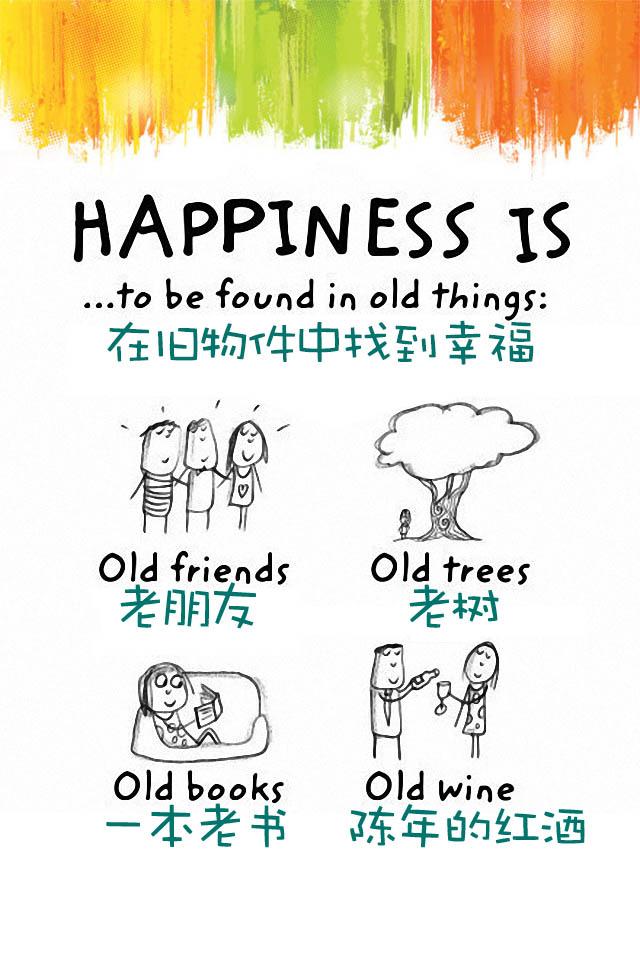 HAPPINESS IS
...to be found in old things:
在旧物件中找到幸福
Old friends
老朋友
Old trees
老树
Old books
一本老书
Old wine
陈年的红酒